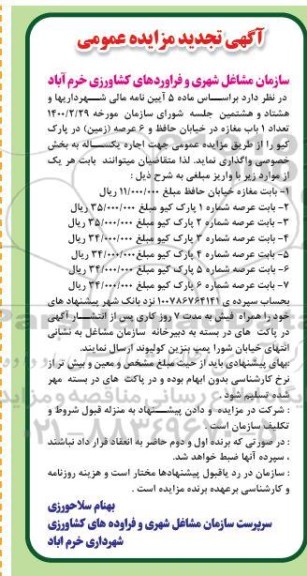 آگهی تجدید مزایده عمومی
سازمان مشاغل شهری و فراوردهای کشاورزی خرم آباد
در نظر دارد براساس ماده ۵ آیین نامه مالی شهرداریها و
هشتاد و هشتمین جلسه شورای سازمان مورخه ۱۴۰۰/۲/۲۹
تعداد ۱ باب مغازه در خیابان حافظ و ۶ عرصه (زمین) در پارک
کیو را از طریق مزایده عمومی جهت اجاره یکساله به بخش
خصوصی واگذاری نماید. لذا متقاضیان میتوانند بابت هر یک
از موارد زیر با واریز مبلغی به شرح ذیل :
۱- بابت مغازه خیابان حافظ مبلغ ۱۱/۰۰۰/۰۰۰ ریال
۲- بابت عرصه شماره ۱ پارک کیو مبلغ ۳۵/۰۰۰/۰۰۰ ریال
۳- بابت عرصه شماره ۲ پارک کیو مبلغ ۳۵/۰۰۰/۰۰۰ ریال
۴- بابت عرصه شماره ۳ پارک کیو مبلغ ۳۴/۰۰۰/۰۰۰ ریال
۵- بابت عرصه شماره ۴ پارک کیو مبلغ ۳۴/۰۰۰/۰۰۰ ریال
۶- بابت عرصه شماره ۵ پارک کیو مبلغ ۳۴/۰۰۰/۰۰۰ ریال
۷- بابت عرصه شماره ۶ پارک کیو مبلغ ۳۴/۰۰۰/۰۰۰ ریال
بحساب سپرده ی ۱۰۰۷۸۶۷۶۴۱۴۱ نزد بانک شهر پیشنهاد های
خود را همراه فیش به مدت ۷ روز کاری پس از انتشار آگهی
در پاکت های در بسته به دبیرخانه سازمان مشاغل به نشانی
انتهای خیابان شورا پمپ بنزین کولیوند ارسال نمایند.
.بهای پیشنهادی باید از حیث مبلغ مشخص و معین و بیش تر از
نرخ کارشناسی بدون ابهام بوده و در پاکت های در بسته مهر
شده تسلیم شود .
: شرکت در مزایده و دادن پیشنهاد به منزله قبول شروط و
تکلیف سازمان است .
: در صورتی که برنده اول و دوم حاضر به انعقاد قرار داد نباشند
، سپرده آنها ضبط خواهد شد.
: سازمان در رد یاقبول پیشنهادها مختار است و هزینه روزنامه
و کارشناسی برعهده برنده مزایده است .
بهنام سلاحورزی
سرپرست سازمان مشاغل شهری و فراوده های کشاورزی
شهرداری خرم اباد